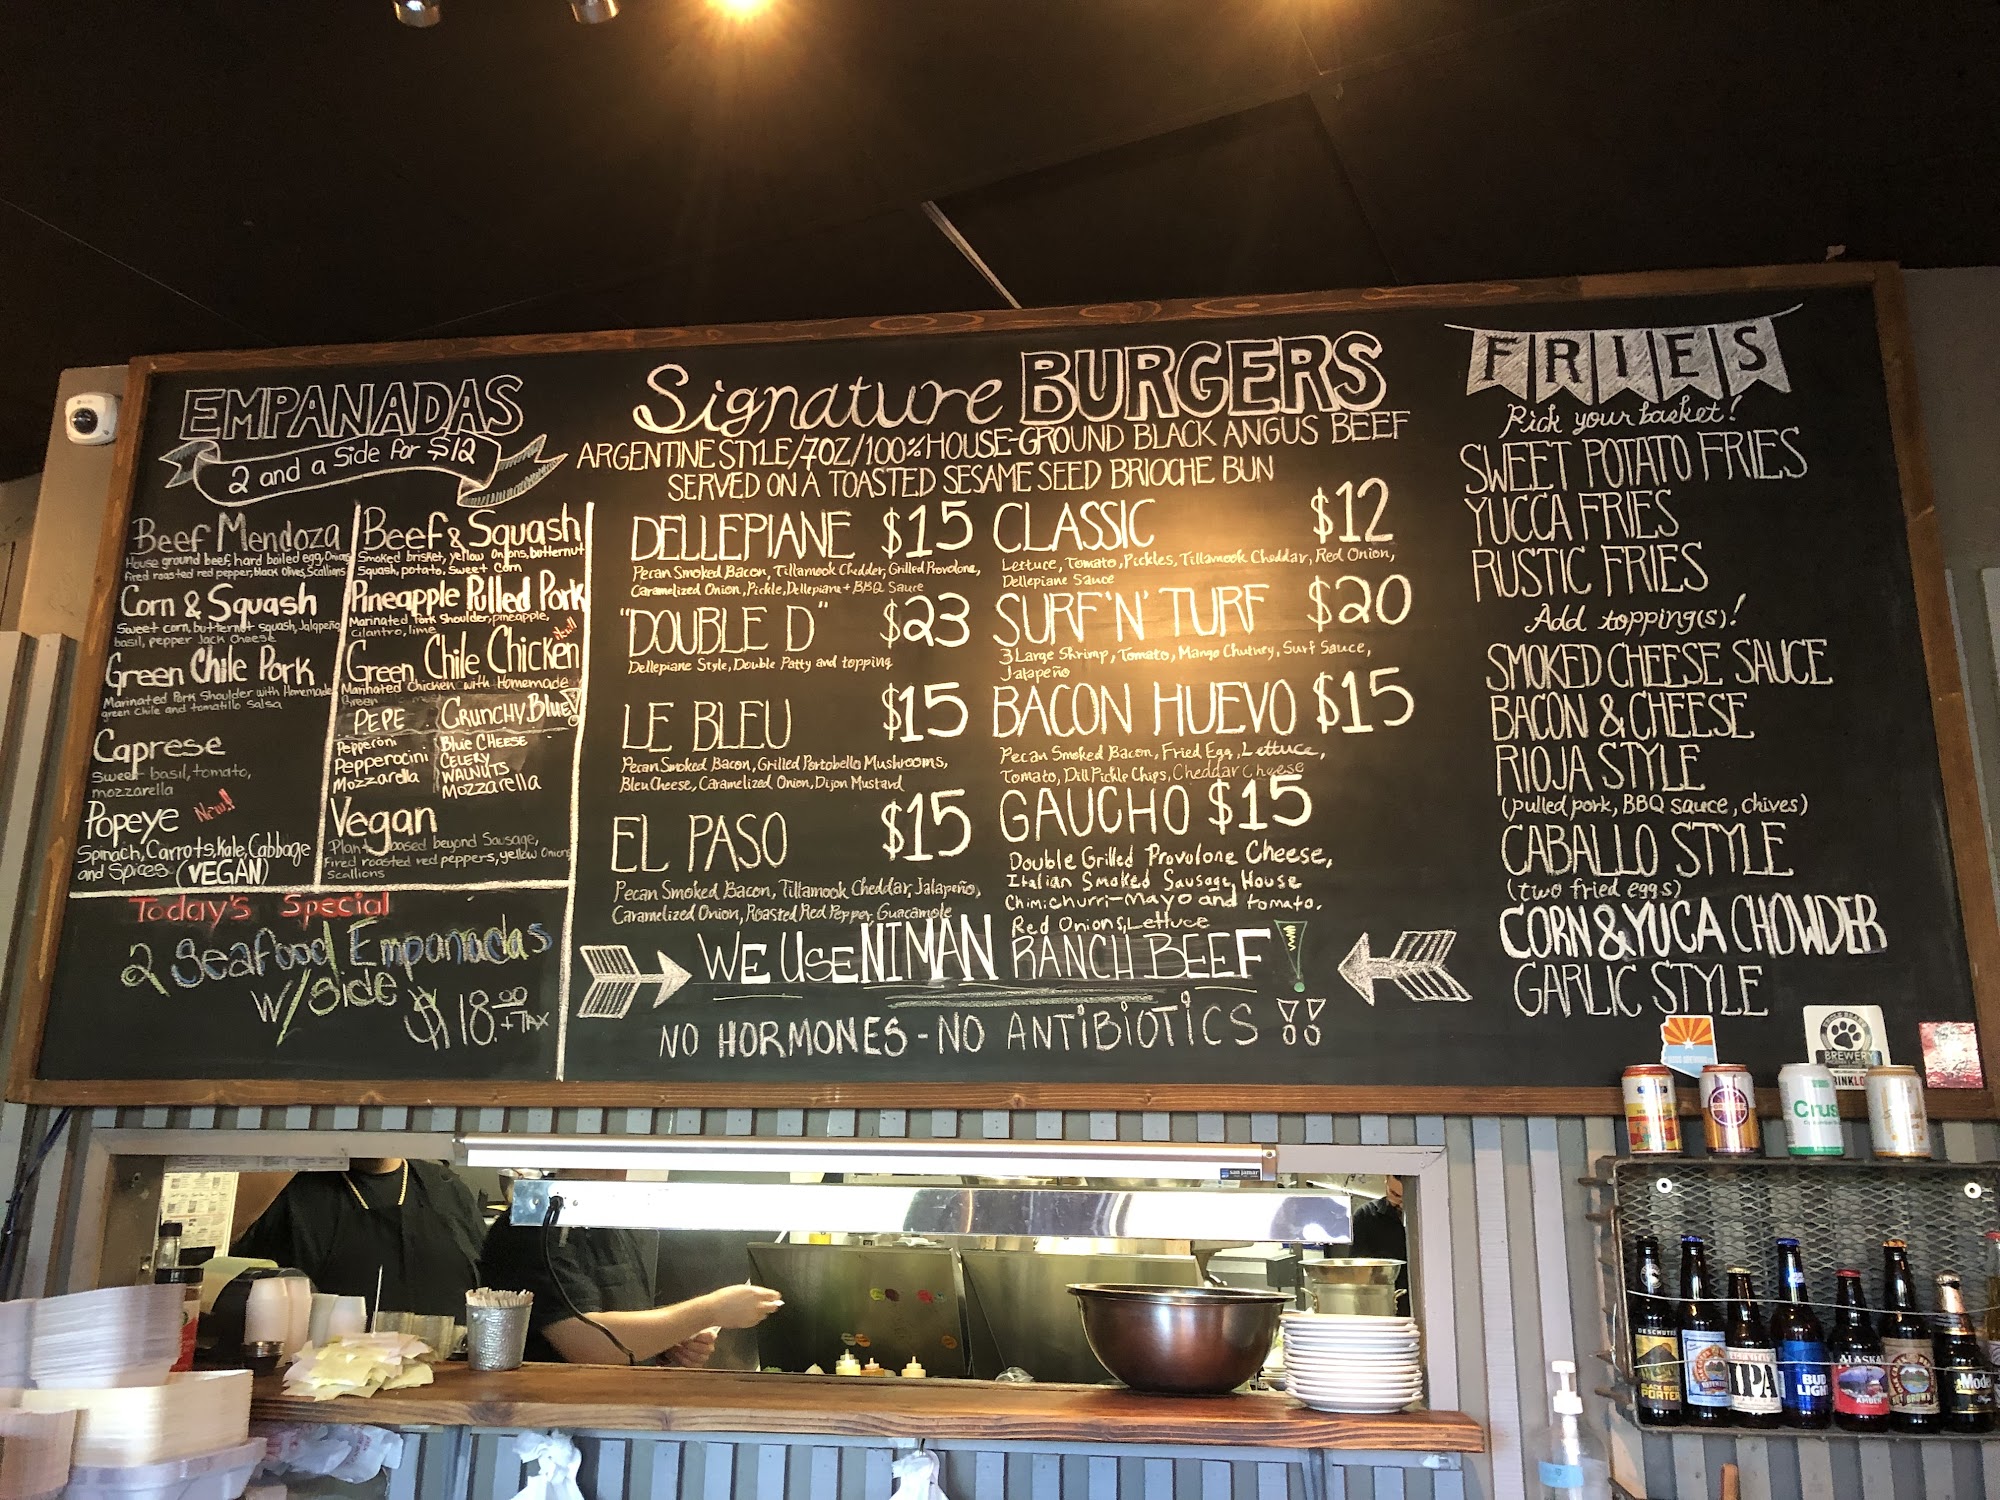 EMPANADAS
2 and a Side for $12
Beef Mendoza
House ground beef, hard boiled egg, Onions
fired roasted red pepper, Black Olives, Scallions
Corn & Squash
Sweet corn, butternut squash, Jalapeño,
basil, pepper Jack Cheese
Green Chile Pork
Marinated Pork Shoulder with Homemade
green chile and tomatillo Salsa
Caprese
Sweet basil, tomato,
mozzarella
Popeye New!!
Spinach, Carrots, Kale, Cabbage
and Spices (VEGAN)
Beef & Squash
Smoked brisket, yellow Onions, butternut
Squash, potato, Sweet Corn
Pineapple Pulled Pork
Marinated Pork Shoulder, pineapple,
Cilantro, lime
Green Chile Chicken
Marinated Chicken with Homemade
Green
PEPE
Pepperoni
Pepperocini
Mozzarella
CRUNCHY Blue!
Blue CHEESE
CELERY
WALNUTS
Mozzarella
Vegan
Plant based beyond Sausage,
Fired roasted red peppers, yellow Onions
Scallions
Today's Special
2 Seafood Empanadas
w/side $18.00
+TAX
Signature BURGERS
ARGENTINE STYLE/7OZ/100% HOUSE-GROUND BLACK ANGUS BEEF
SERVED ON A TOASTED SESAME SEED BRIOCHE BUN
DELLEPIANE $15
Pecan Smoked Bacon, Tillamook Chedder, Grilled Provolone,
Caramelized Onion, Pickle, Dellepiane + BBQ Sauce
"DOUBLE D" $23
Dellepiane Style, Double Patty and topping
LE BLEU $15
Pecan Smoked Bacon, Grilled Portobello Mushrooms,
Bleu Cheese, Caramelized Onion, Dijon Mustard
EL PASO $15
Pecan Smoked Bacon, Tillamook Cheddar, Jalapeño,
Caramelized Onion, Roasted Red Pepper, Guacamole
CLASSIC $12
Lettuce, Tomato, Pickles, Tillamook Cheddar, Red Onion,
Dellepiane Sauce
SURF 'N' TURF $20
3 Large Shrimp, Tomato, Mango Chutney, Surf Sauce,
Jalapeño
BACON HUEVO $15
Pecan Smoked Bacon, Fried Egg, Lettuce,
Tomato, Dill Pickle Chips, Cheddar Cheese
GAUCHO $15
Double Grilled Provolone Cheese,
Italian Smoked Sausage, House
Chimichurri-Mayo and tomato,
Red Onions, Lettuce
WE USE NIMAN RANCH BEEF!
NO HORMONES - NO ANTIBIOTICS !!
FRIES
Pick your basket!
SWEET POTATO FRIES
YUCCA FRIES
RUSTIC FRIES
Add topping(s)!
SMOKED CHEESE SAUCE
BACON & CHEESE
RIOJA STYLE
(pulled pork, BBQ sauce, chives)
CABALLO STYLE
(two fried eggs)
CORN & YUCA CHOWDER
GARLIC STYLE
BREWERY
Crus
san jamar
DESCHUTES
BLACK BUTTE
PORTER
IPA
BUD
LIGHT
ALASKA
AMBER
NUT BROWN
Mode